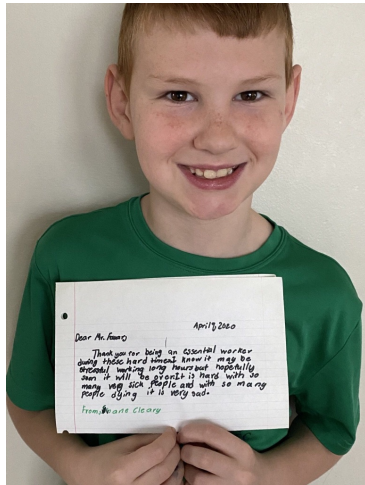 April 9, 2020
Dear Mr.
Thank you for being an essential worker
during these hard times I know it may be
stressful working long hours but hopefully
soon it will be over. It is hard with so
many very sick people and with so many
people dying it is very sad.
From, Cleary